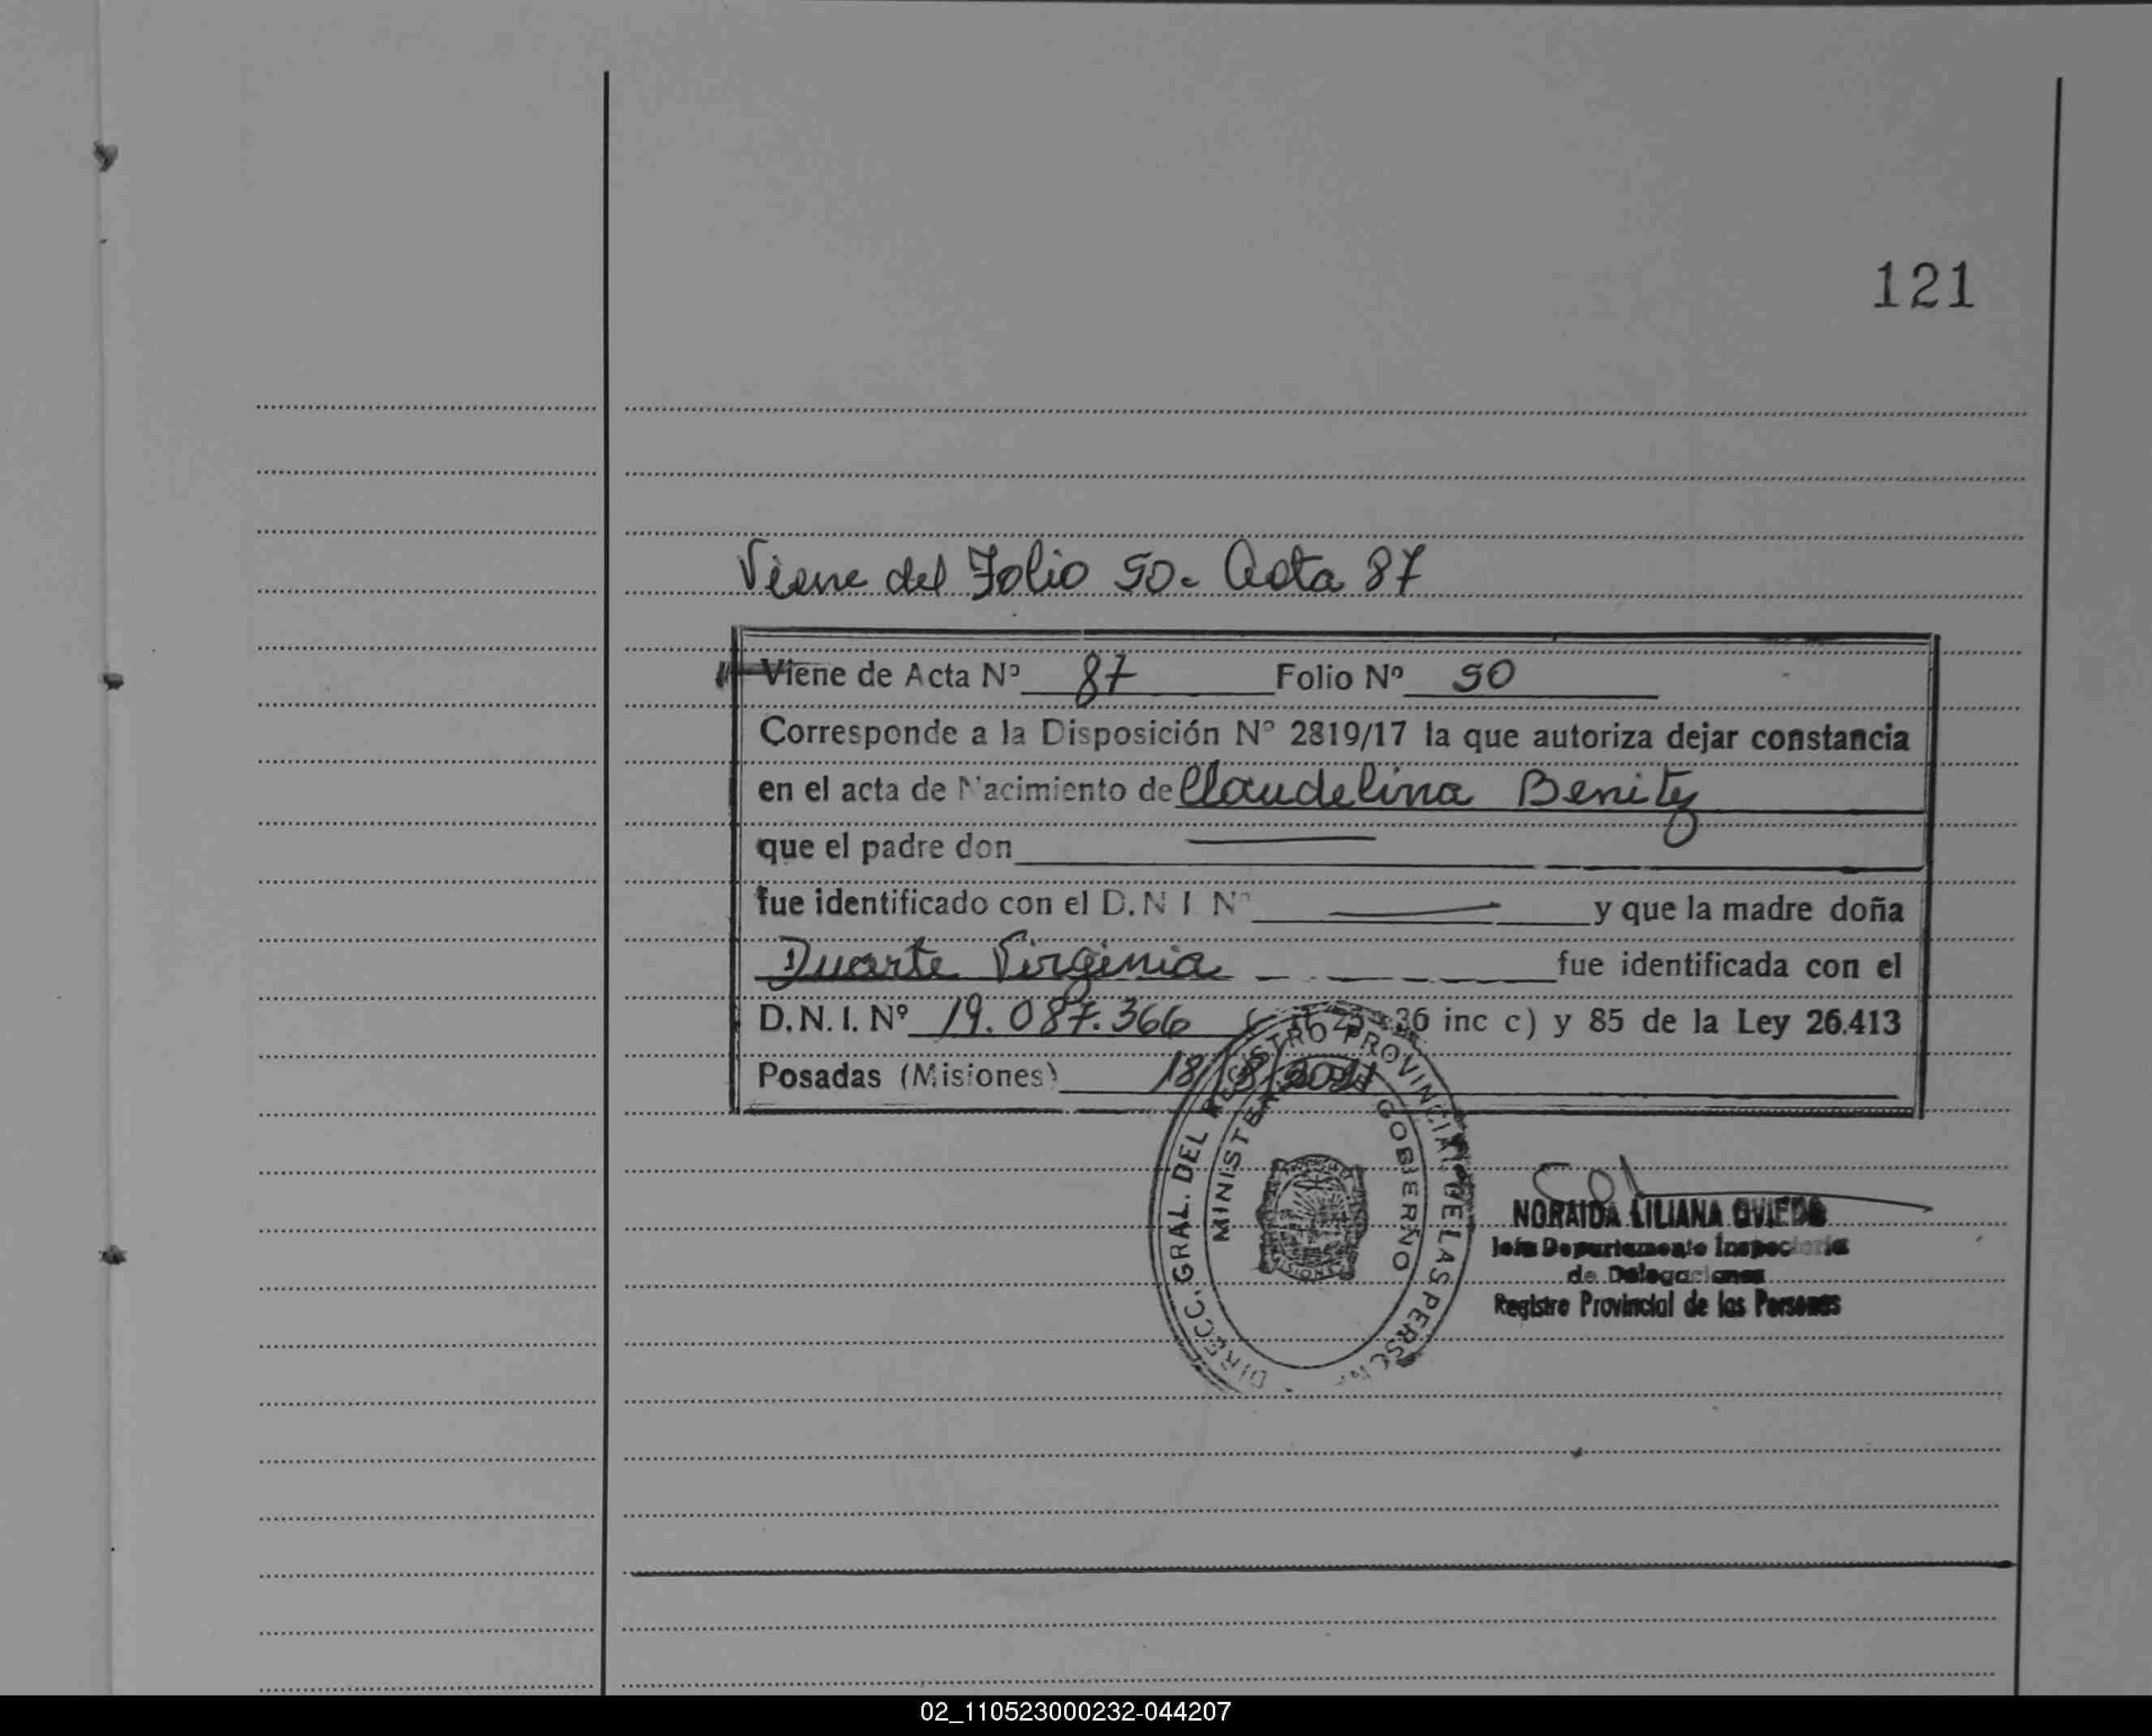 121
Viene del Folio 50- Acta 87
Viene de Acta Nº 87 Folio Nº 50
Corresponde a la Disposición Nº 2819/17 la que autoriza dejar constancia
en el acta de Nacimiento de Claudelina Benitez
que el padre don
fue identificado con el D.N I Nº y que la madre doña
Duarte Virginia fue identificada con el
D.N.I. Nº 19.087.366 36 inc c) y 85 de la Ley 26.413
Posadas (Misiones) 18/8/2021
DIRECC. GRAL. DEL REGISTRO PROVINCIAL DE LAS PERSON
MINISTE GOBIERNO
MISIONES
NORAIDA LILIANA OVIEDO
Jefa Departamento Inspectoria
de Delegaciones
Registro Provincial de las Personas
02_110523000232-044207